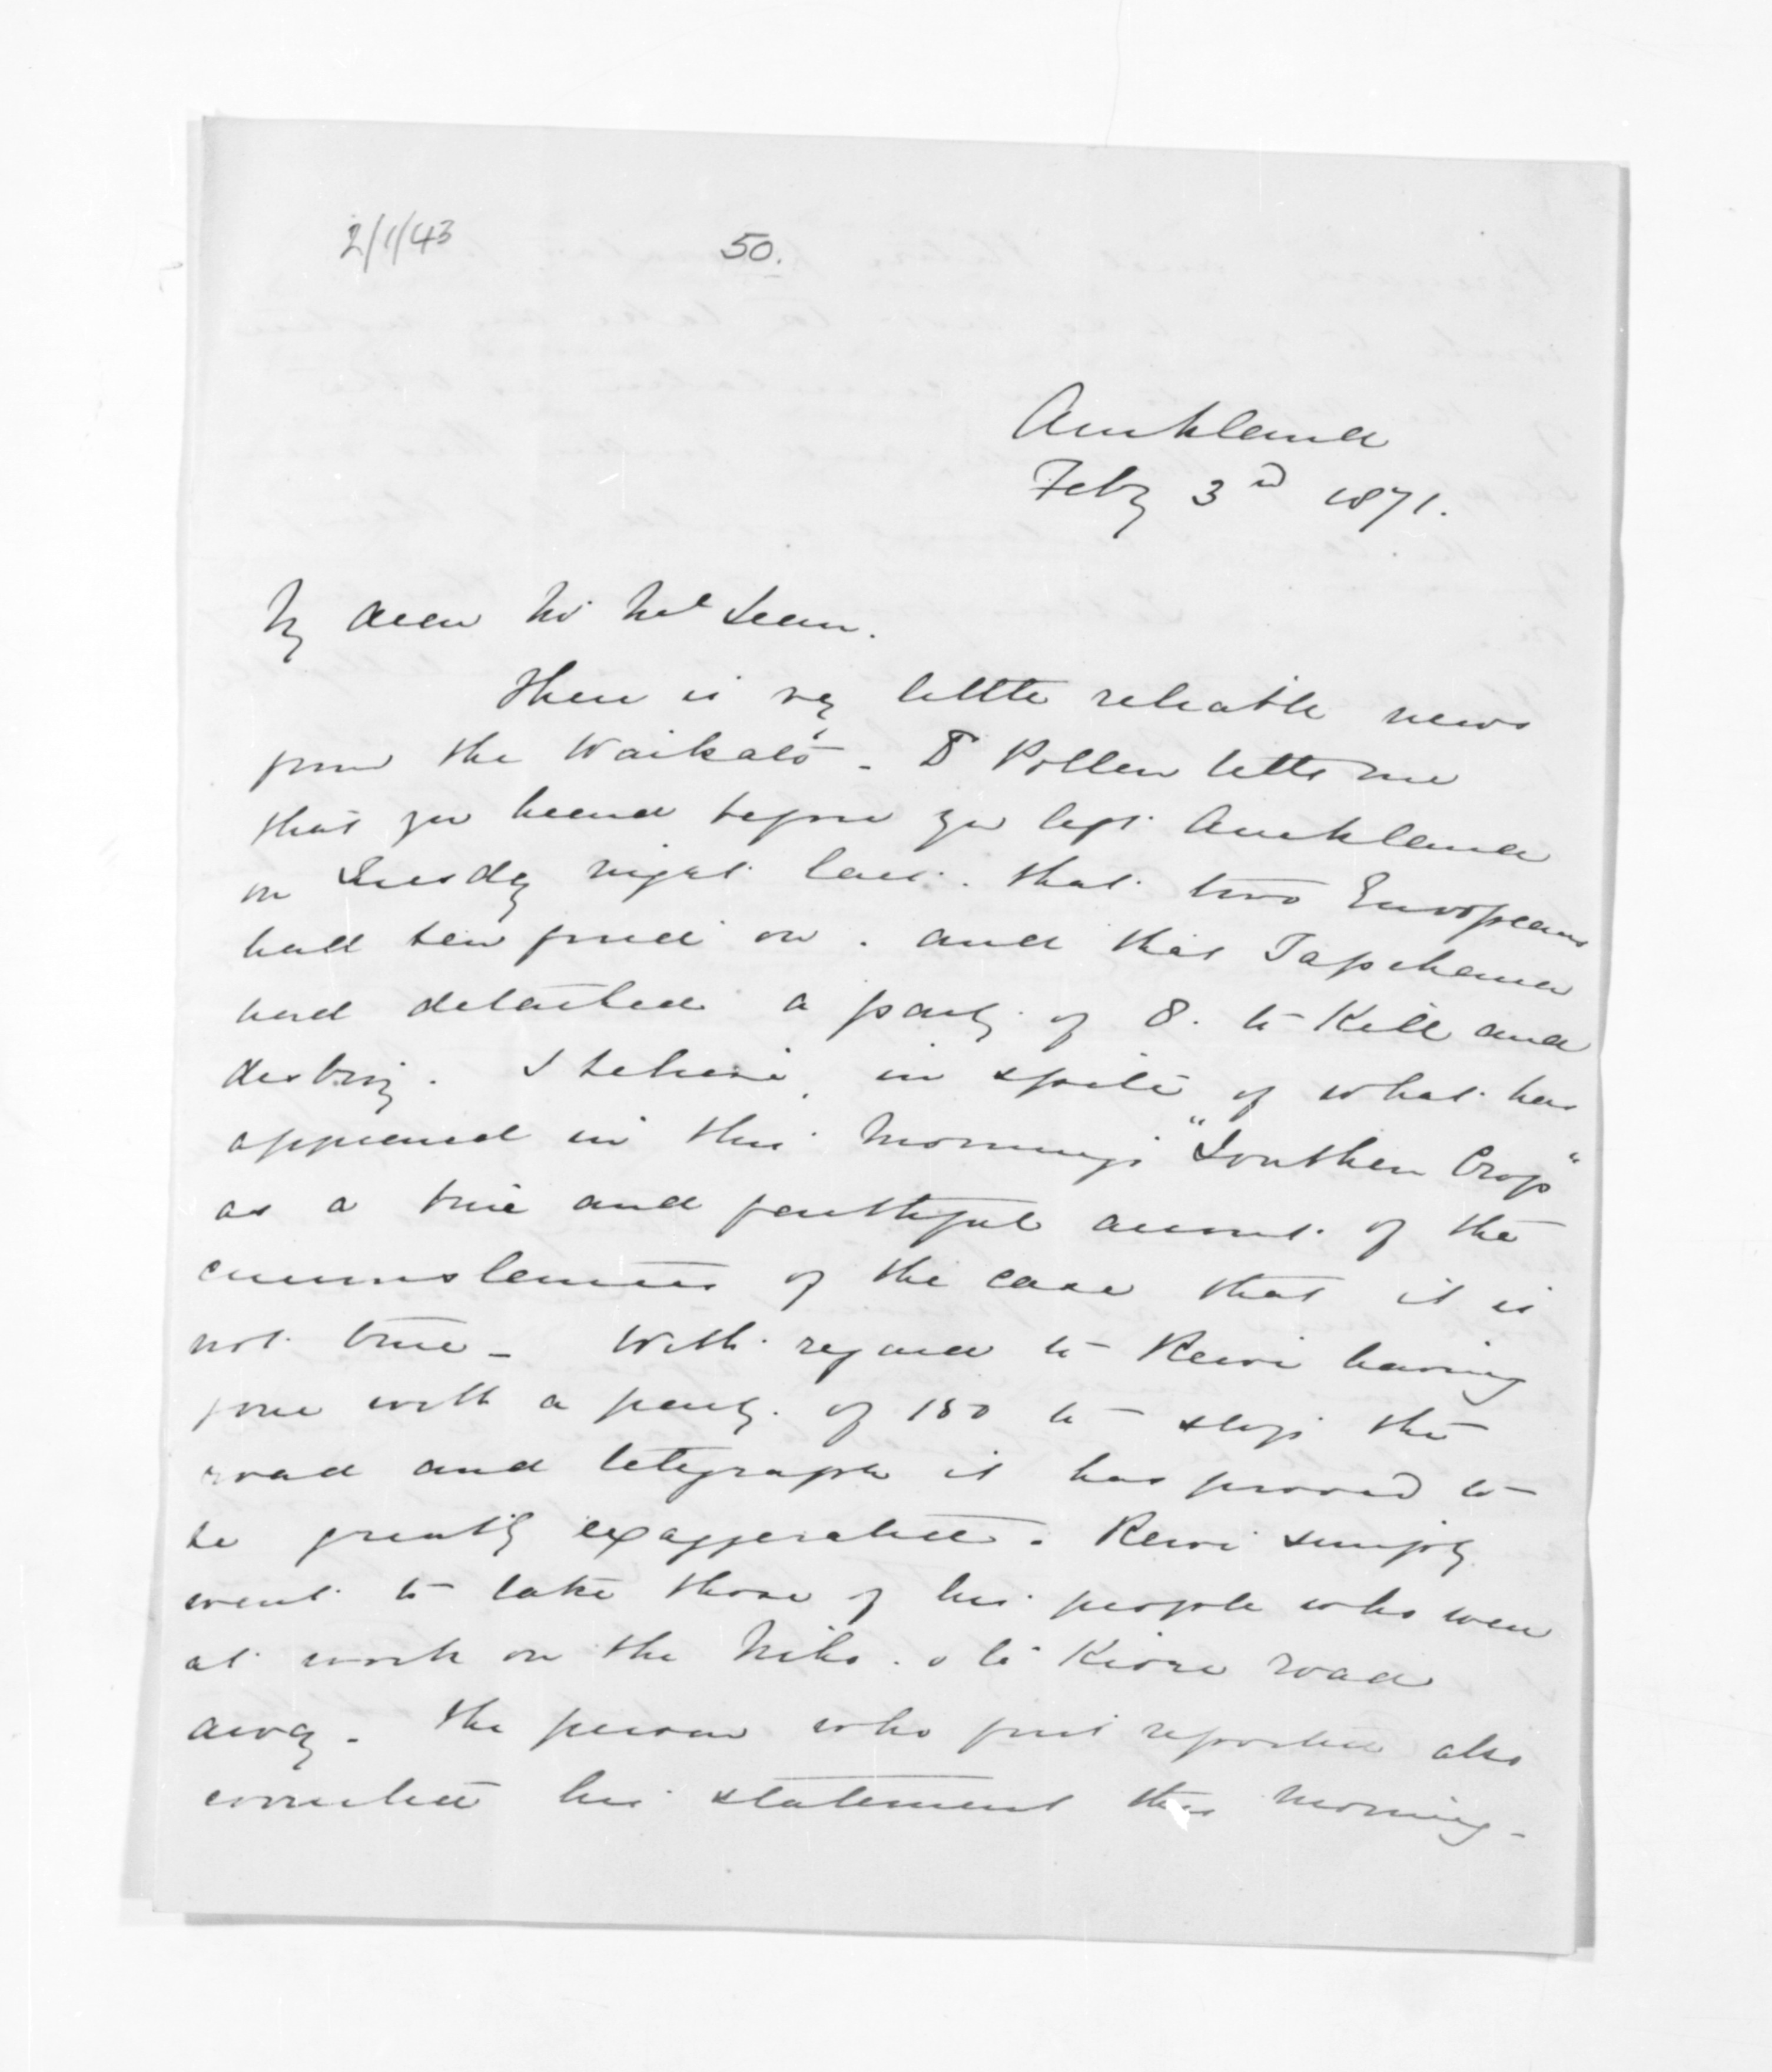 2/1/43
50.
Auckland
Feby 3rd 1871.
My dear Mr McLean.
There is very little reliable news
from the Waikato - Dr Pollen tells me
that you heard before you left Auckland
on Tuesday night last. that two Europeans
had been fired on. and that Tapihana
had detached a party of 8. to Kill and
destroy. I believe, in spite of what has
appeared in this morning's "Southern Cross"
as a true and faithful account of the
circumstances of the case that it is
not true - With regard to Rewi having
gone with a party of 150 to stop the
road and telegraph it has proved to
be greatly exaggerated. Rewi simply
went to take those of his people who were
at work on the Niho. o te Kiore road
away. The person who first reported also
corrected his statement this morning -